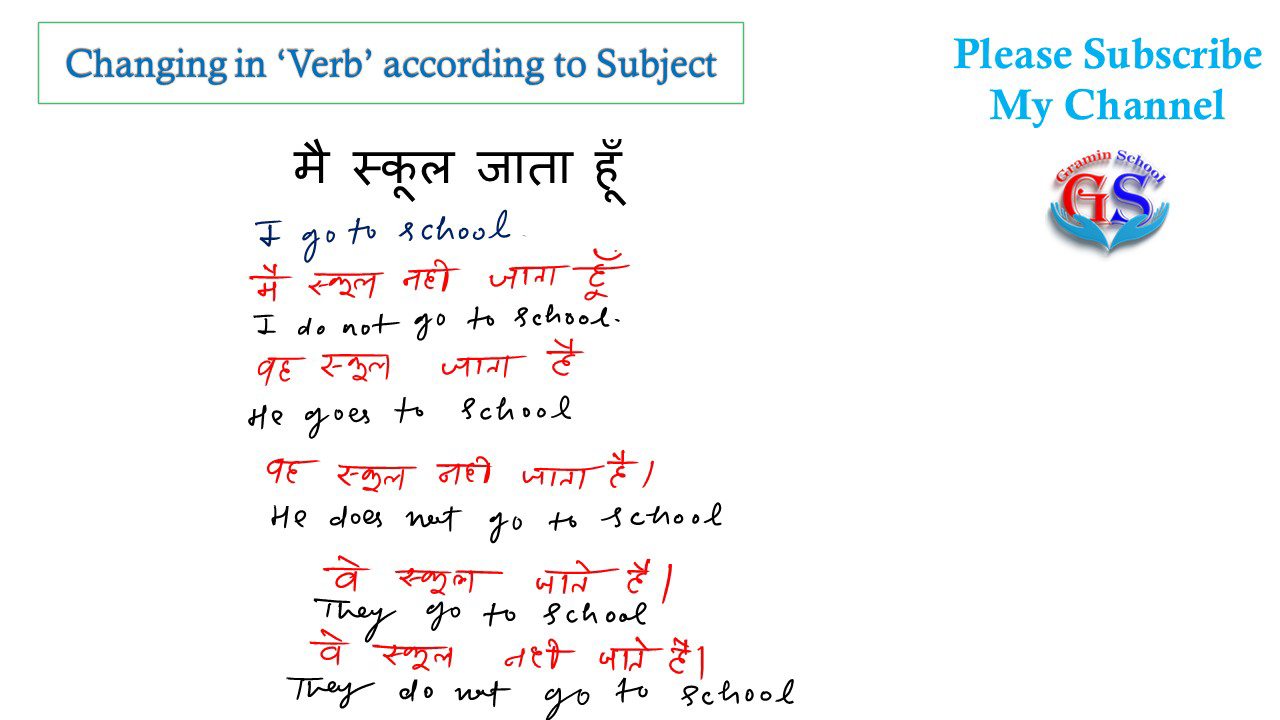 Changing in ‘Verb’ according to Subject
Please Subscribe
My Channel
Gramin School
GS
मै स्कूल जाता हूँ
I go to school.
मै स्कूल नही जाता हूँ
I do not go to school.
वह स्कूल जाता है
He goes to school
वह स्कूल नही जाता है।
He does not go to school
वे स्कूल जाते है।
They go to school
वे स्कूल नही जाते है।
They do not go to school